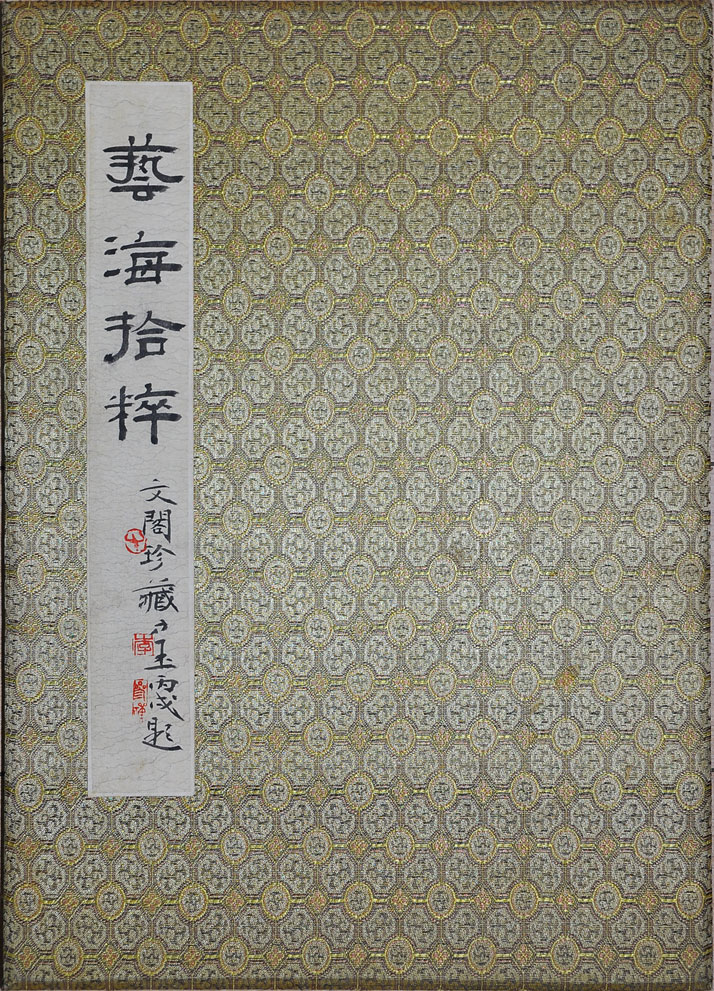 藝海拾粹
文閣珍藏
丙戌題